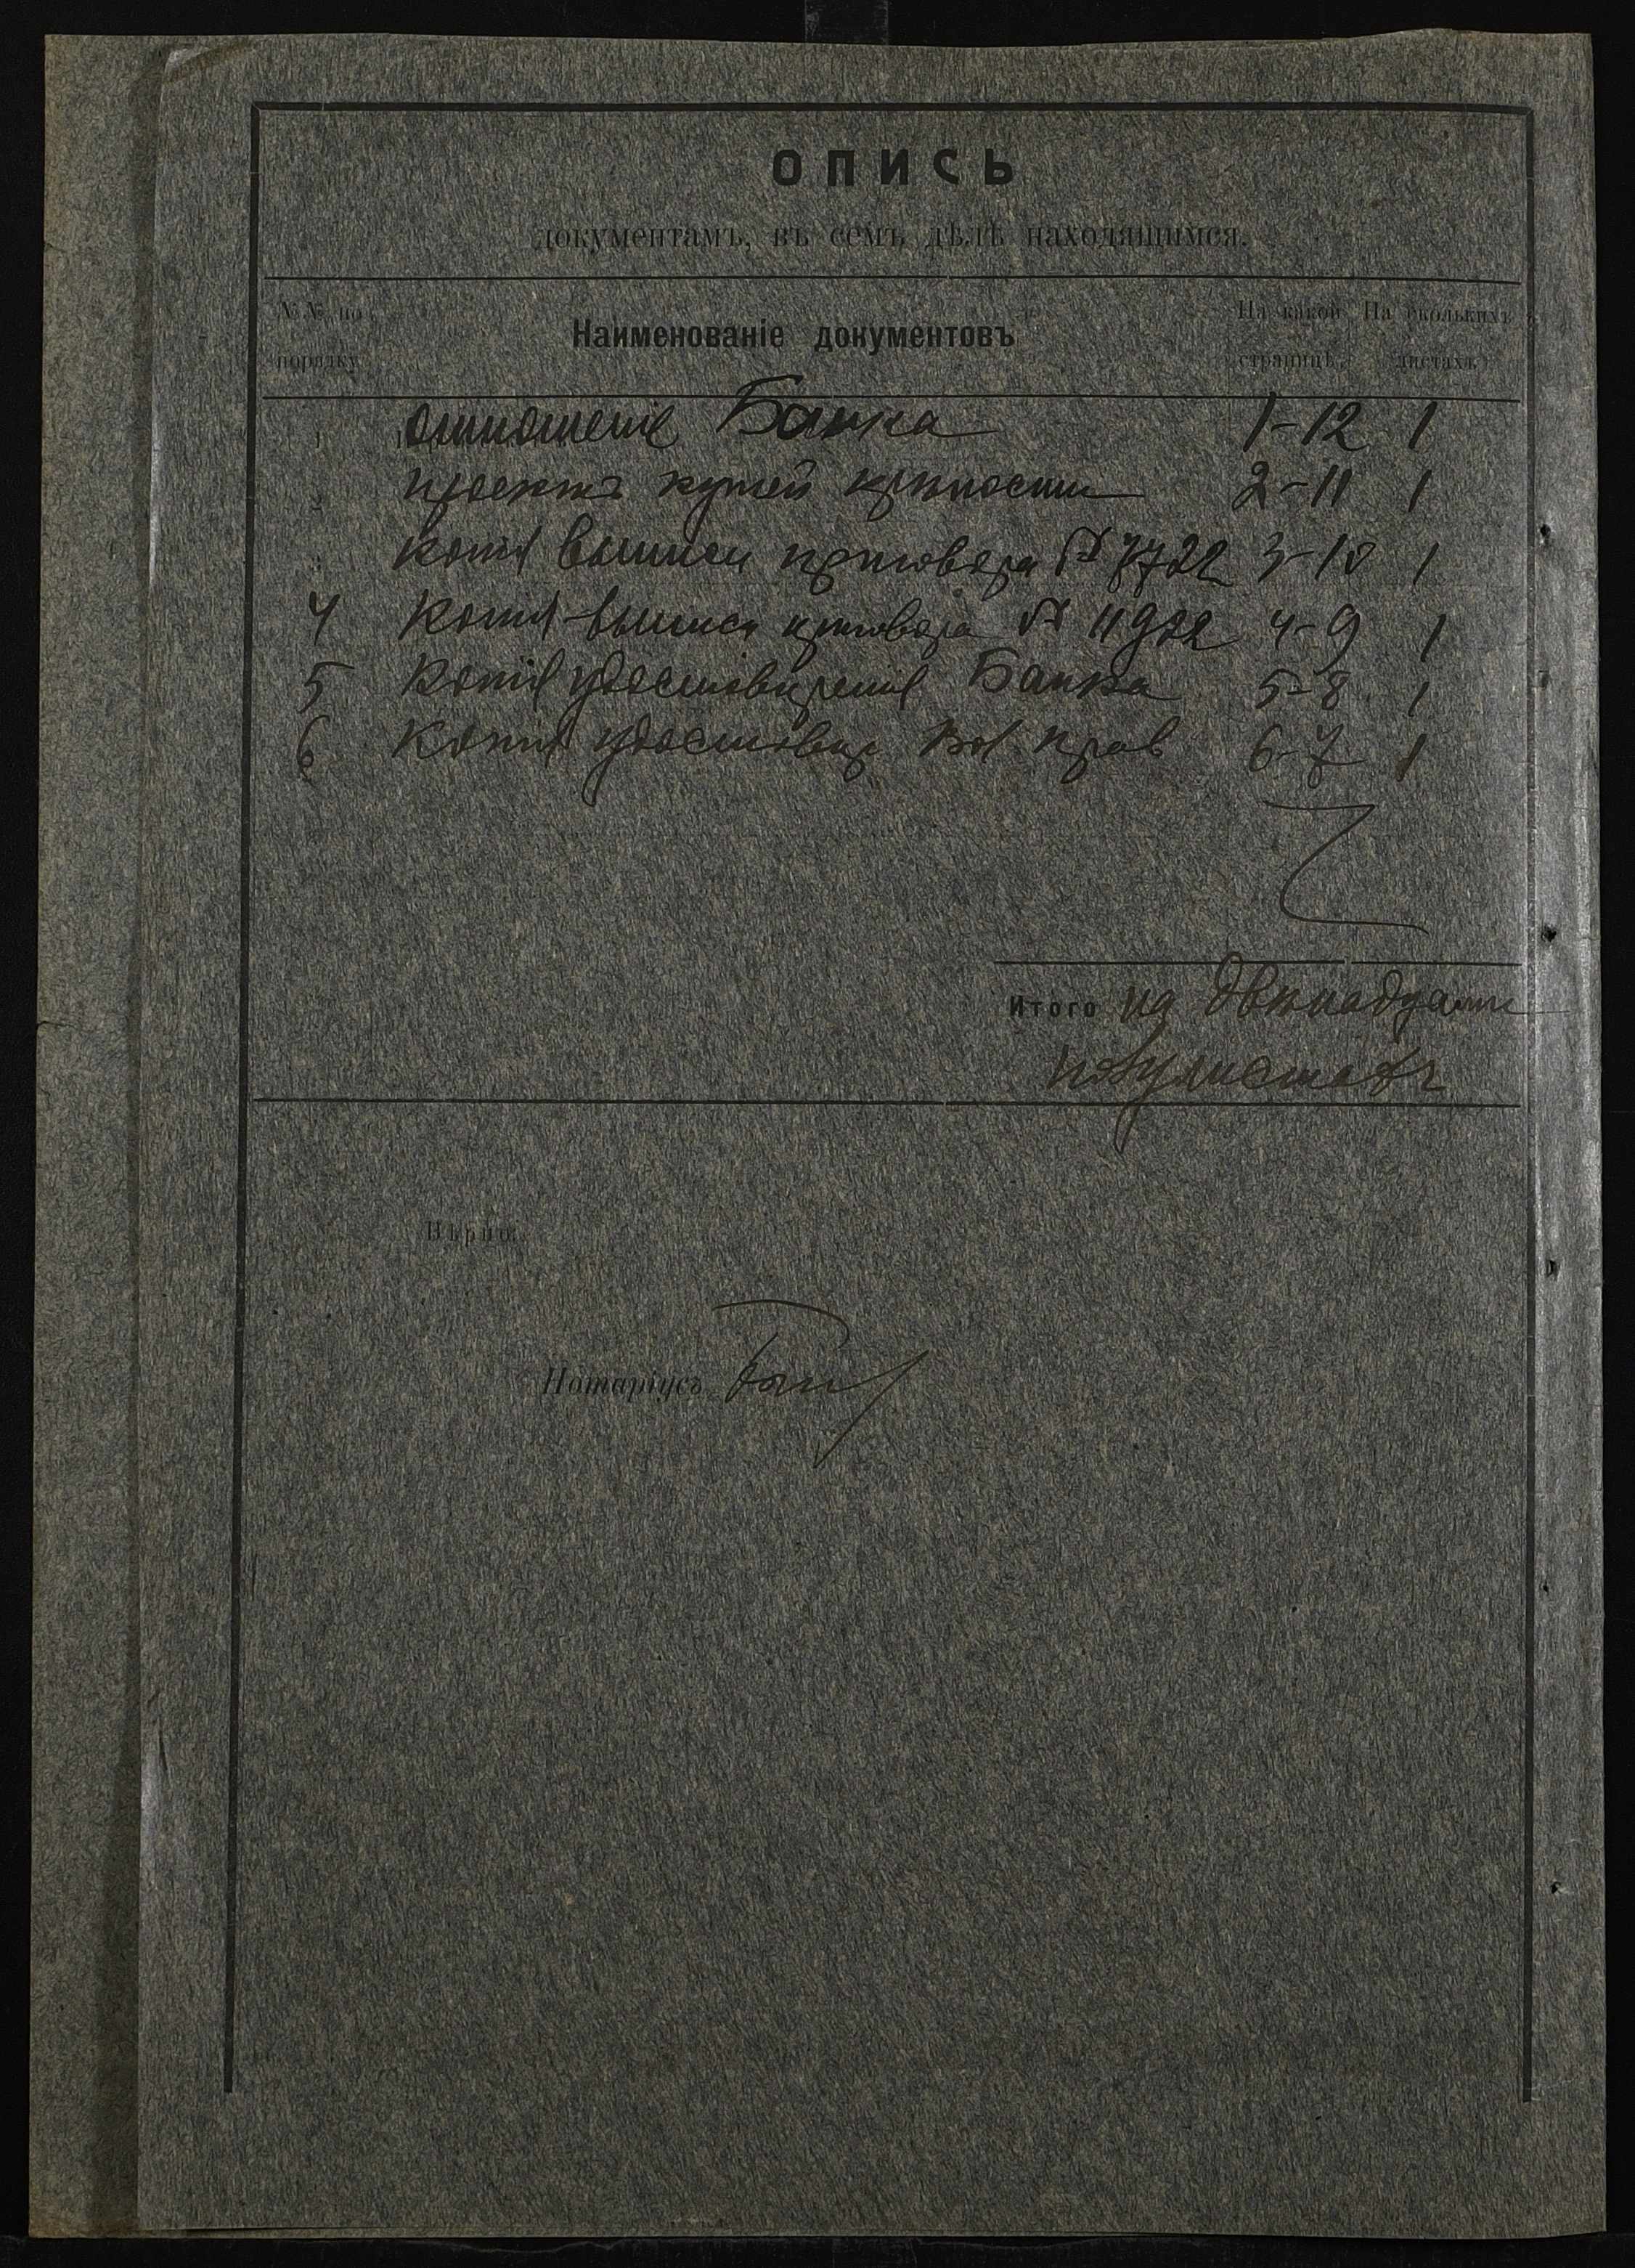 ОПИСЬ
документамъ, въ семъ дѣлѣ находящимся.
№№ по порядку
Наименованіе документовъ
На какой страницѣ.
На сколькихъ листахъ.
1 отношеніе Банка 1-12 1
2 проектъ купчей крѣпости 2-11 1
3 копія выписи приговора № 7722 3-10 1
4 копія выписи приговора № 11922 4-9 1
5 копія удостовѣренія Банка 5-8 1
6 копія удостовѣр Вол прав 6-7 1
Итого на двѣнадцати
полулистахъ
Вѣрно:
Нотаріусъ